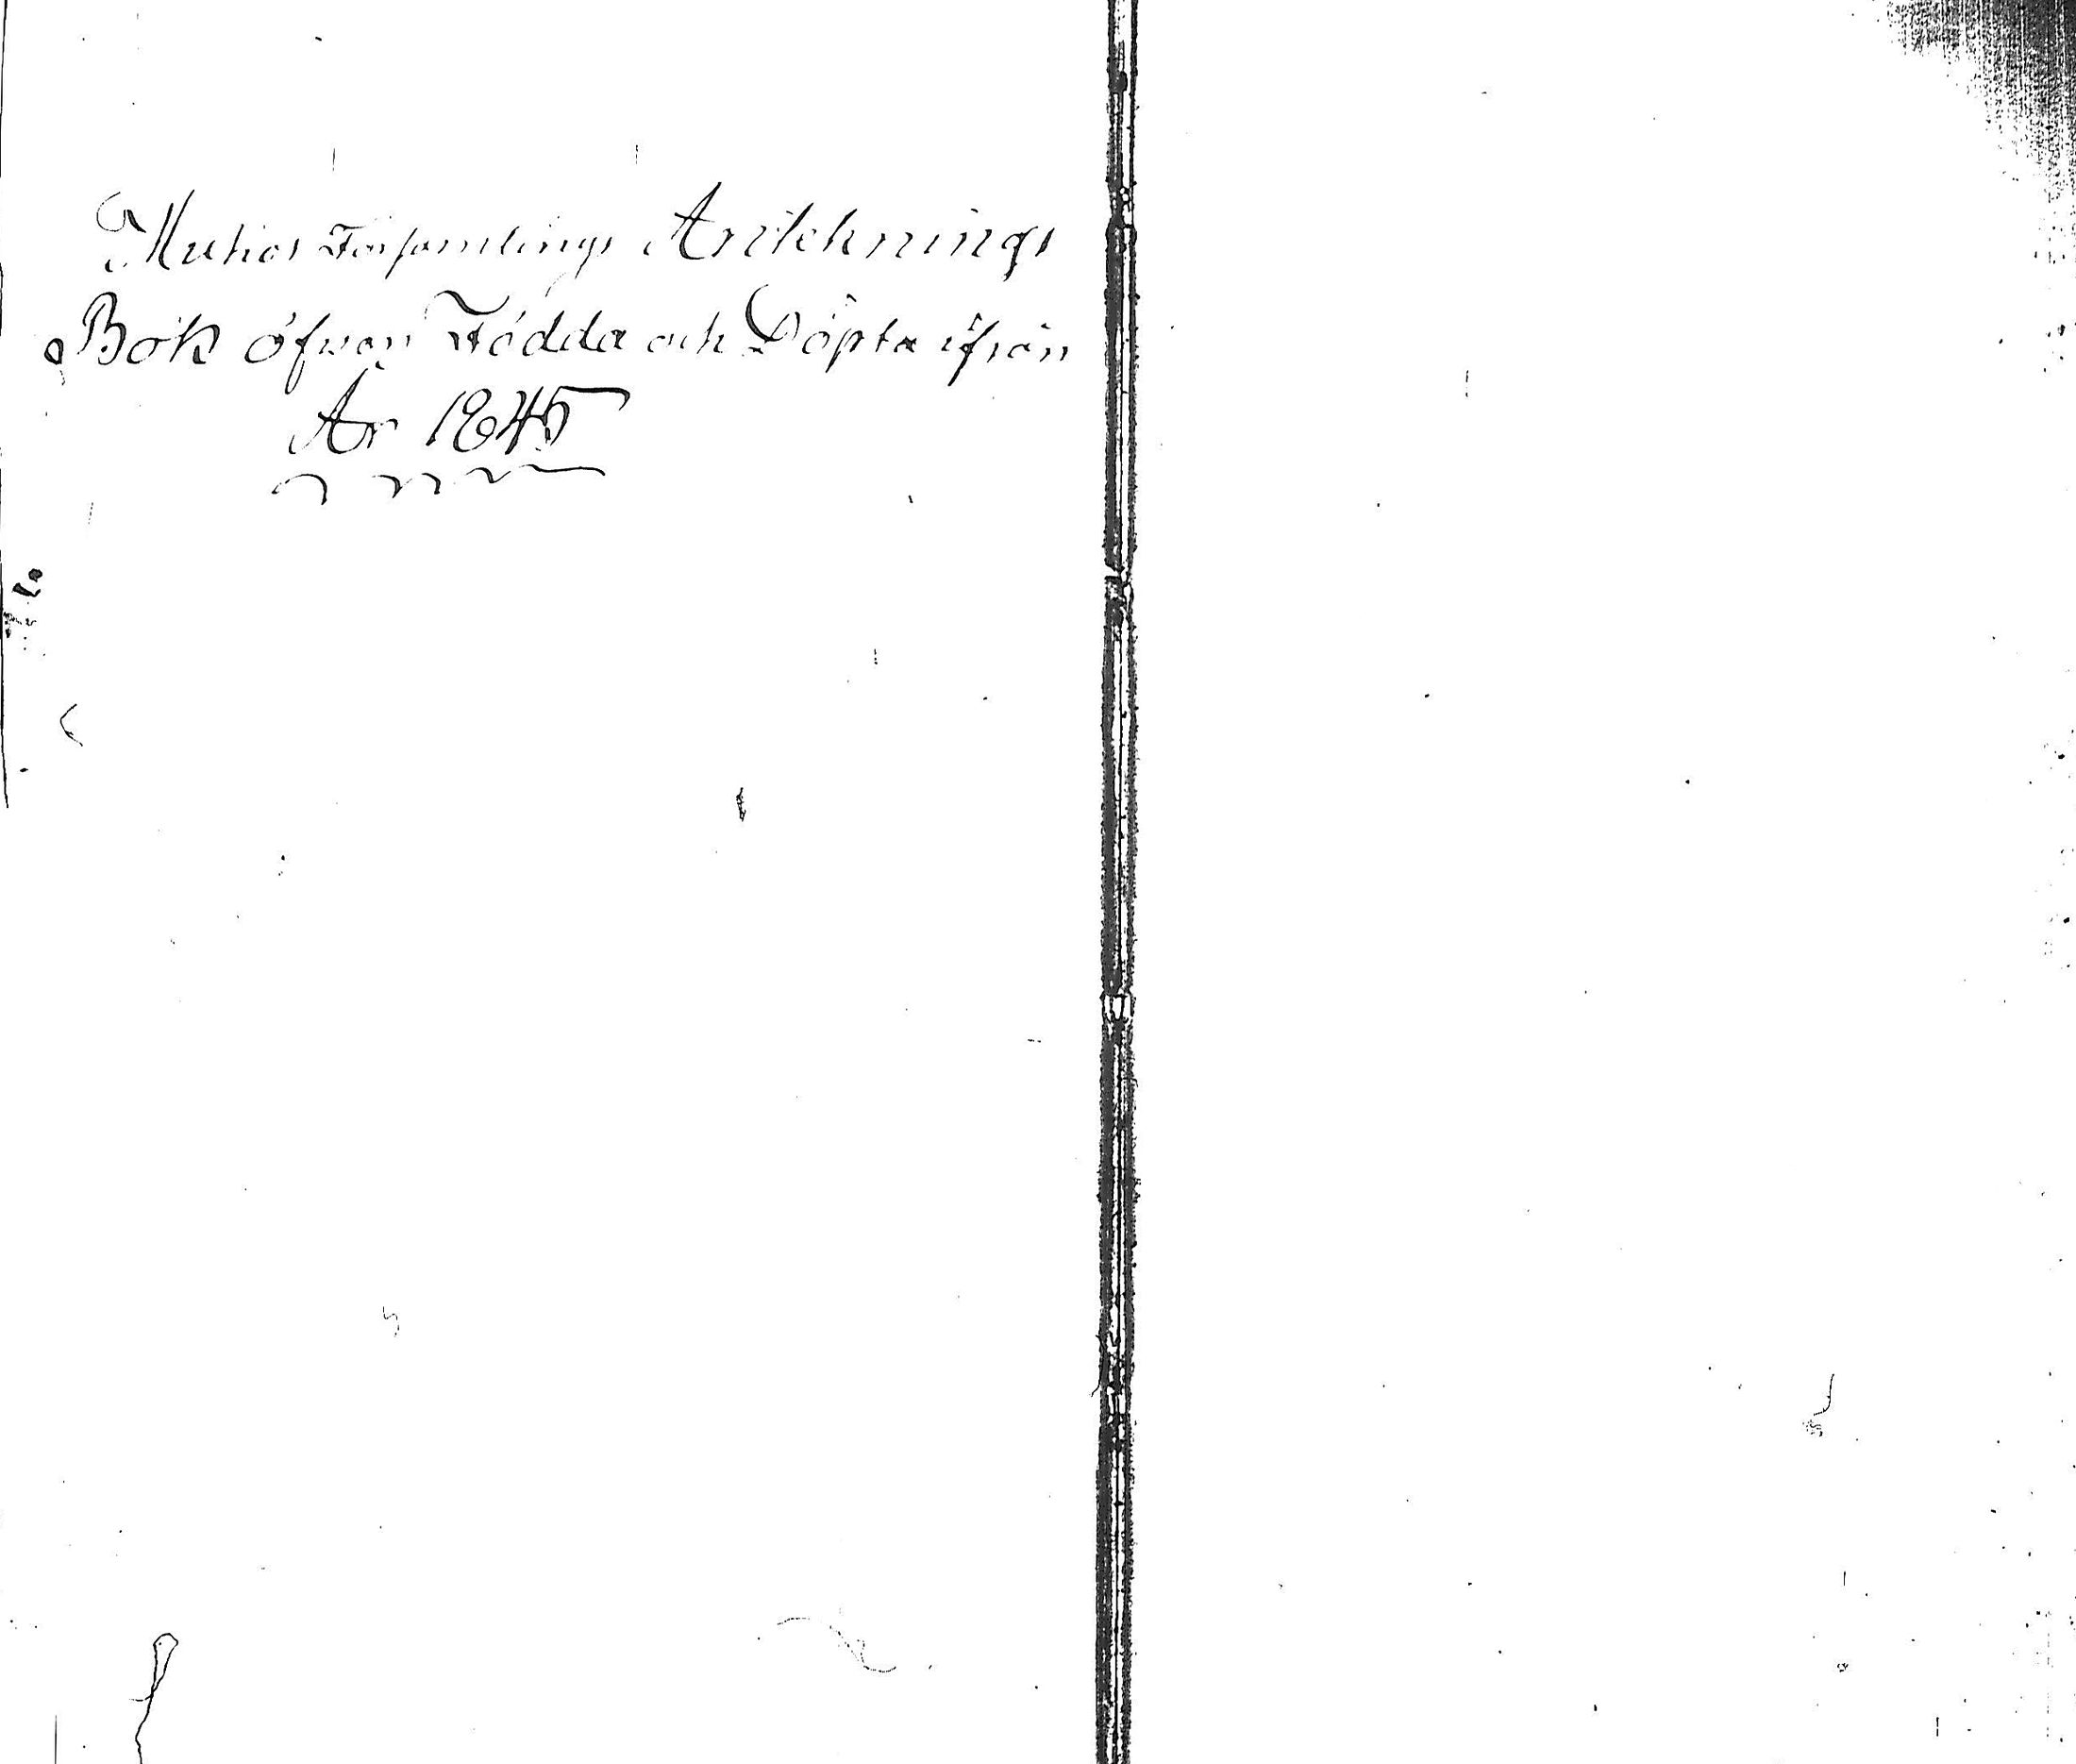 Muhos Församlings Anteknings
Bok öfver Födda och Döpta ifrån
År 1845